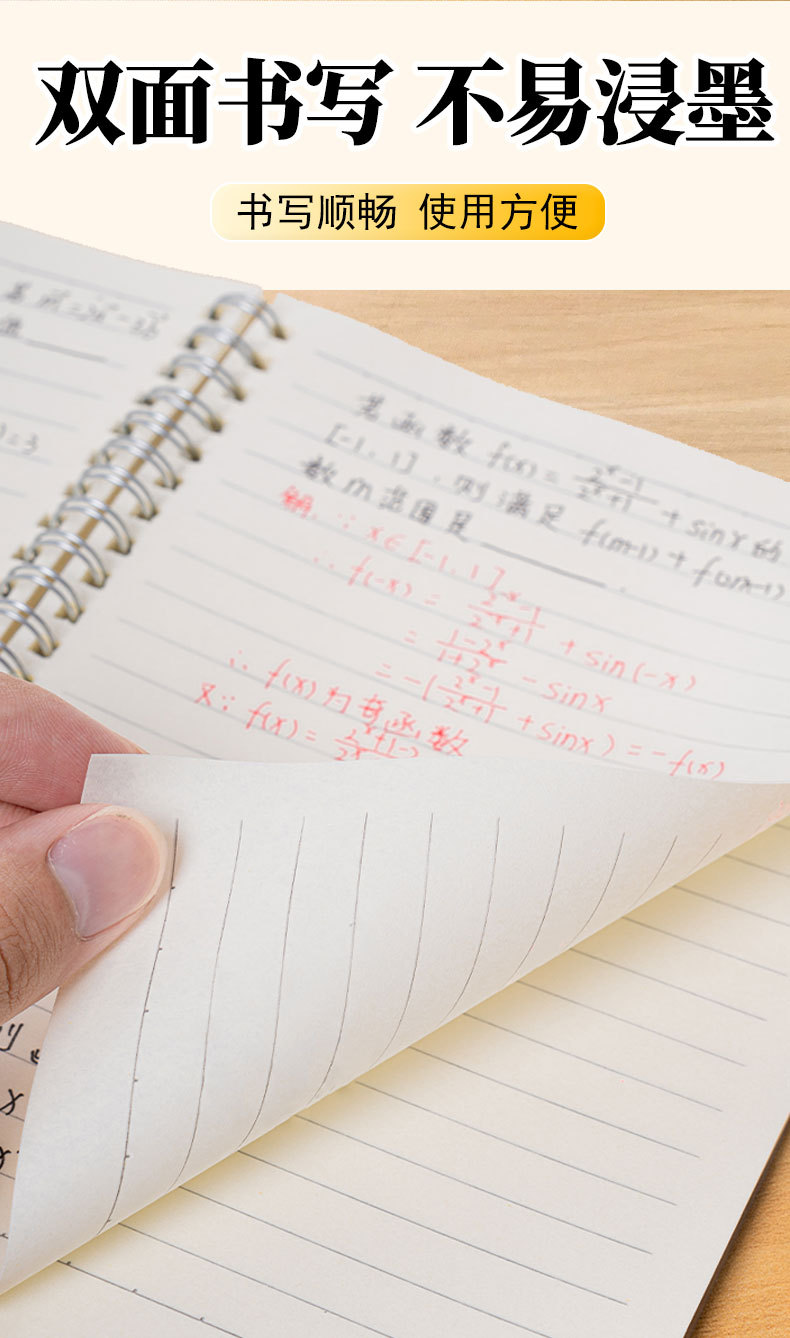 双面书写 不易浸墨
书写顺畅 使用方便
=3
若函数 f(x) = (2^x-1)/(2^x+1) + sinx 的
[-1,1],则满足 f(m+1)+f(2m-1)
数m范围是______.
解:∵ x∈[-1,1]
∴ f(-x) = (2^-x-1)/(2^-x+1) + sin(-x)
= (1-2^x)/(1+2^x) - sinx
= -((2^x-1)/(2^x+1) + sinx) = -f(x)
∴ f(x)为奇函数
又∵ f(x) =